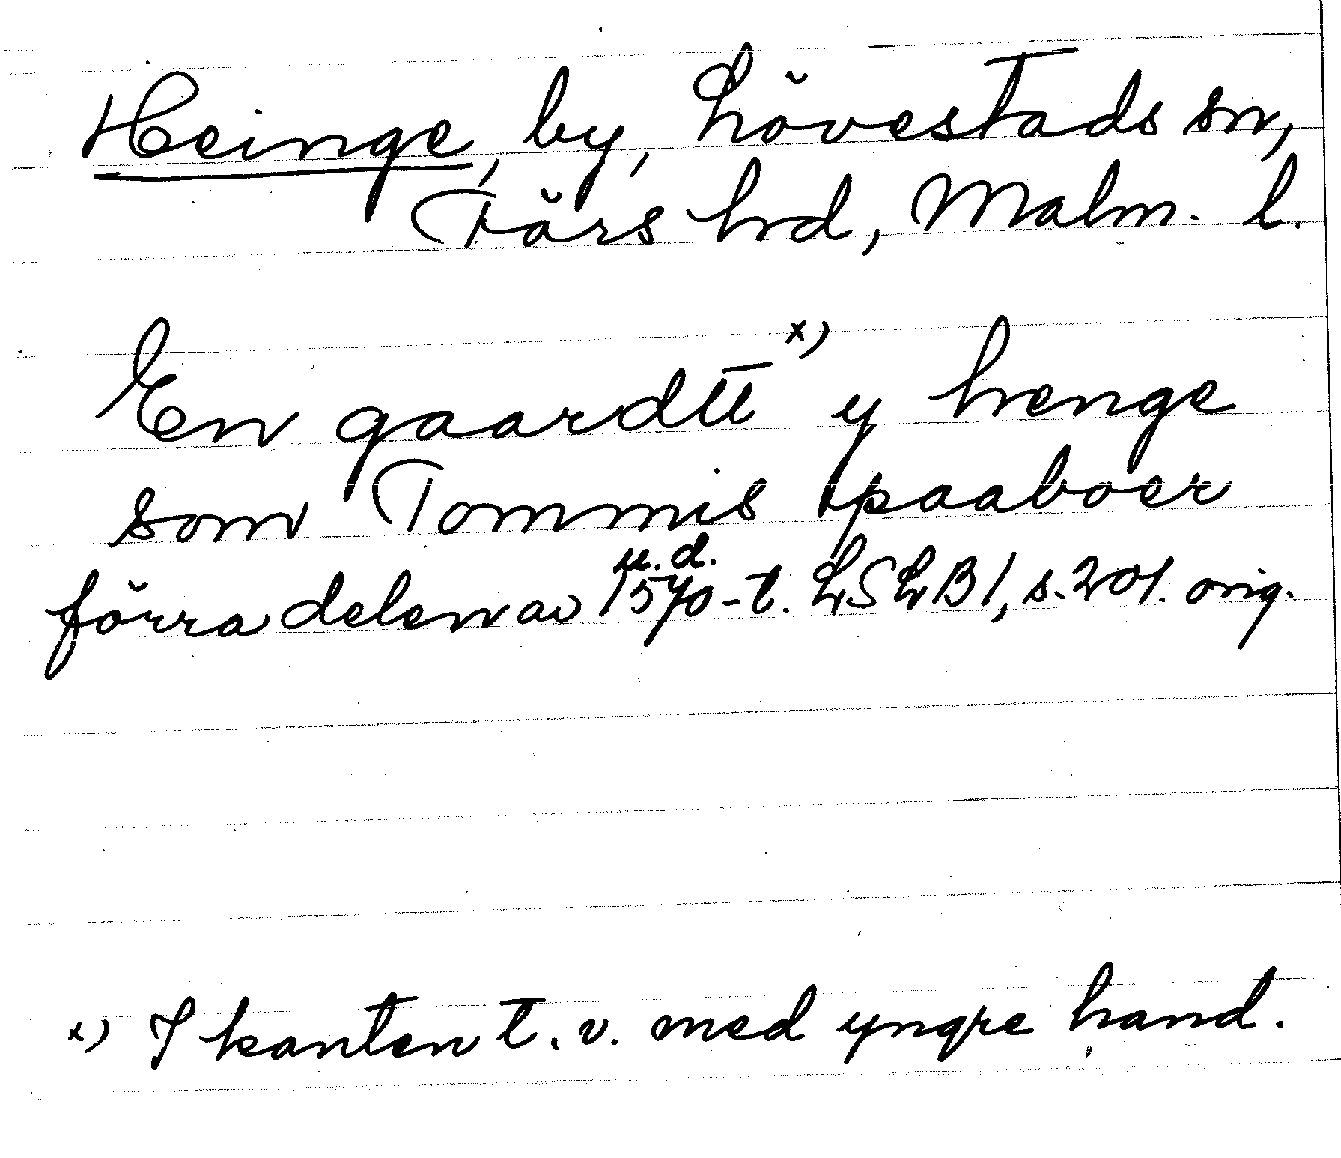 Heinge, by, Lövestads sn,
Färs hd, Malm. l.
En gaardtt x) y henge
som Tommis paaboer
u. d.
förra delen av 1570-t. LSLB1, s. 201. orig.
x) I kanten t. v. med yngre hand.